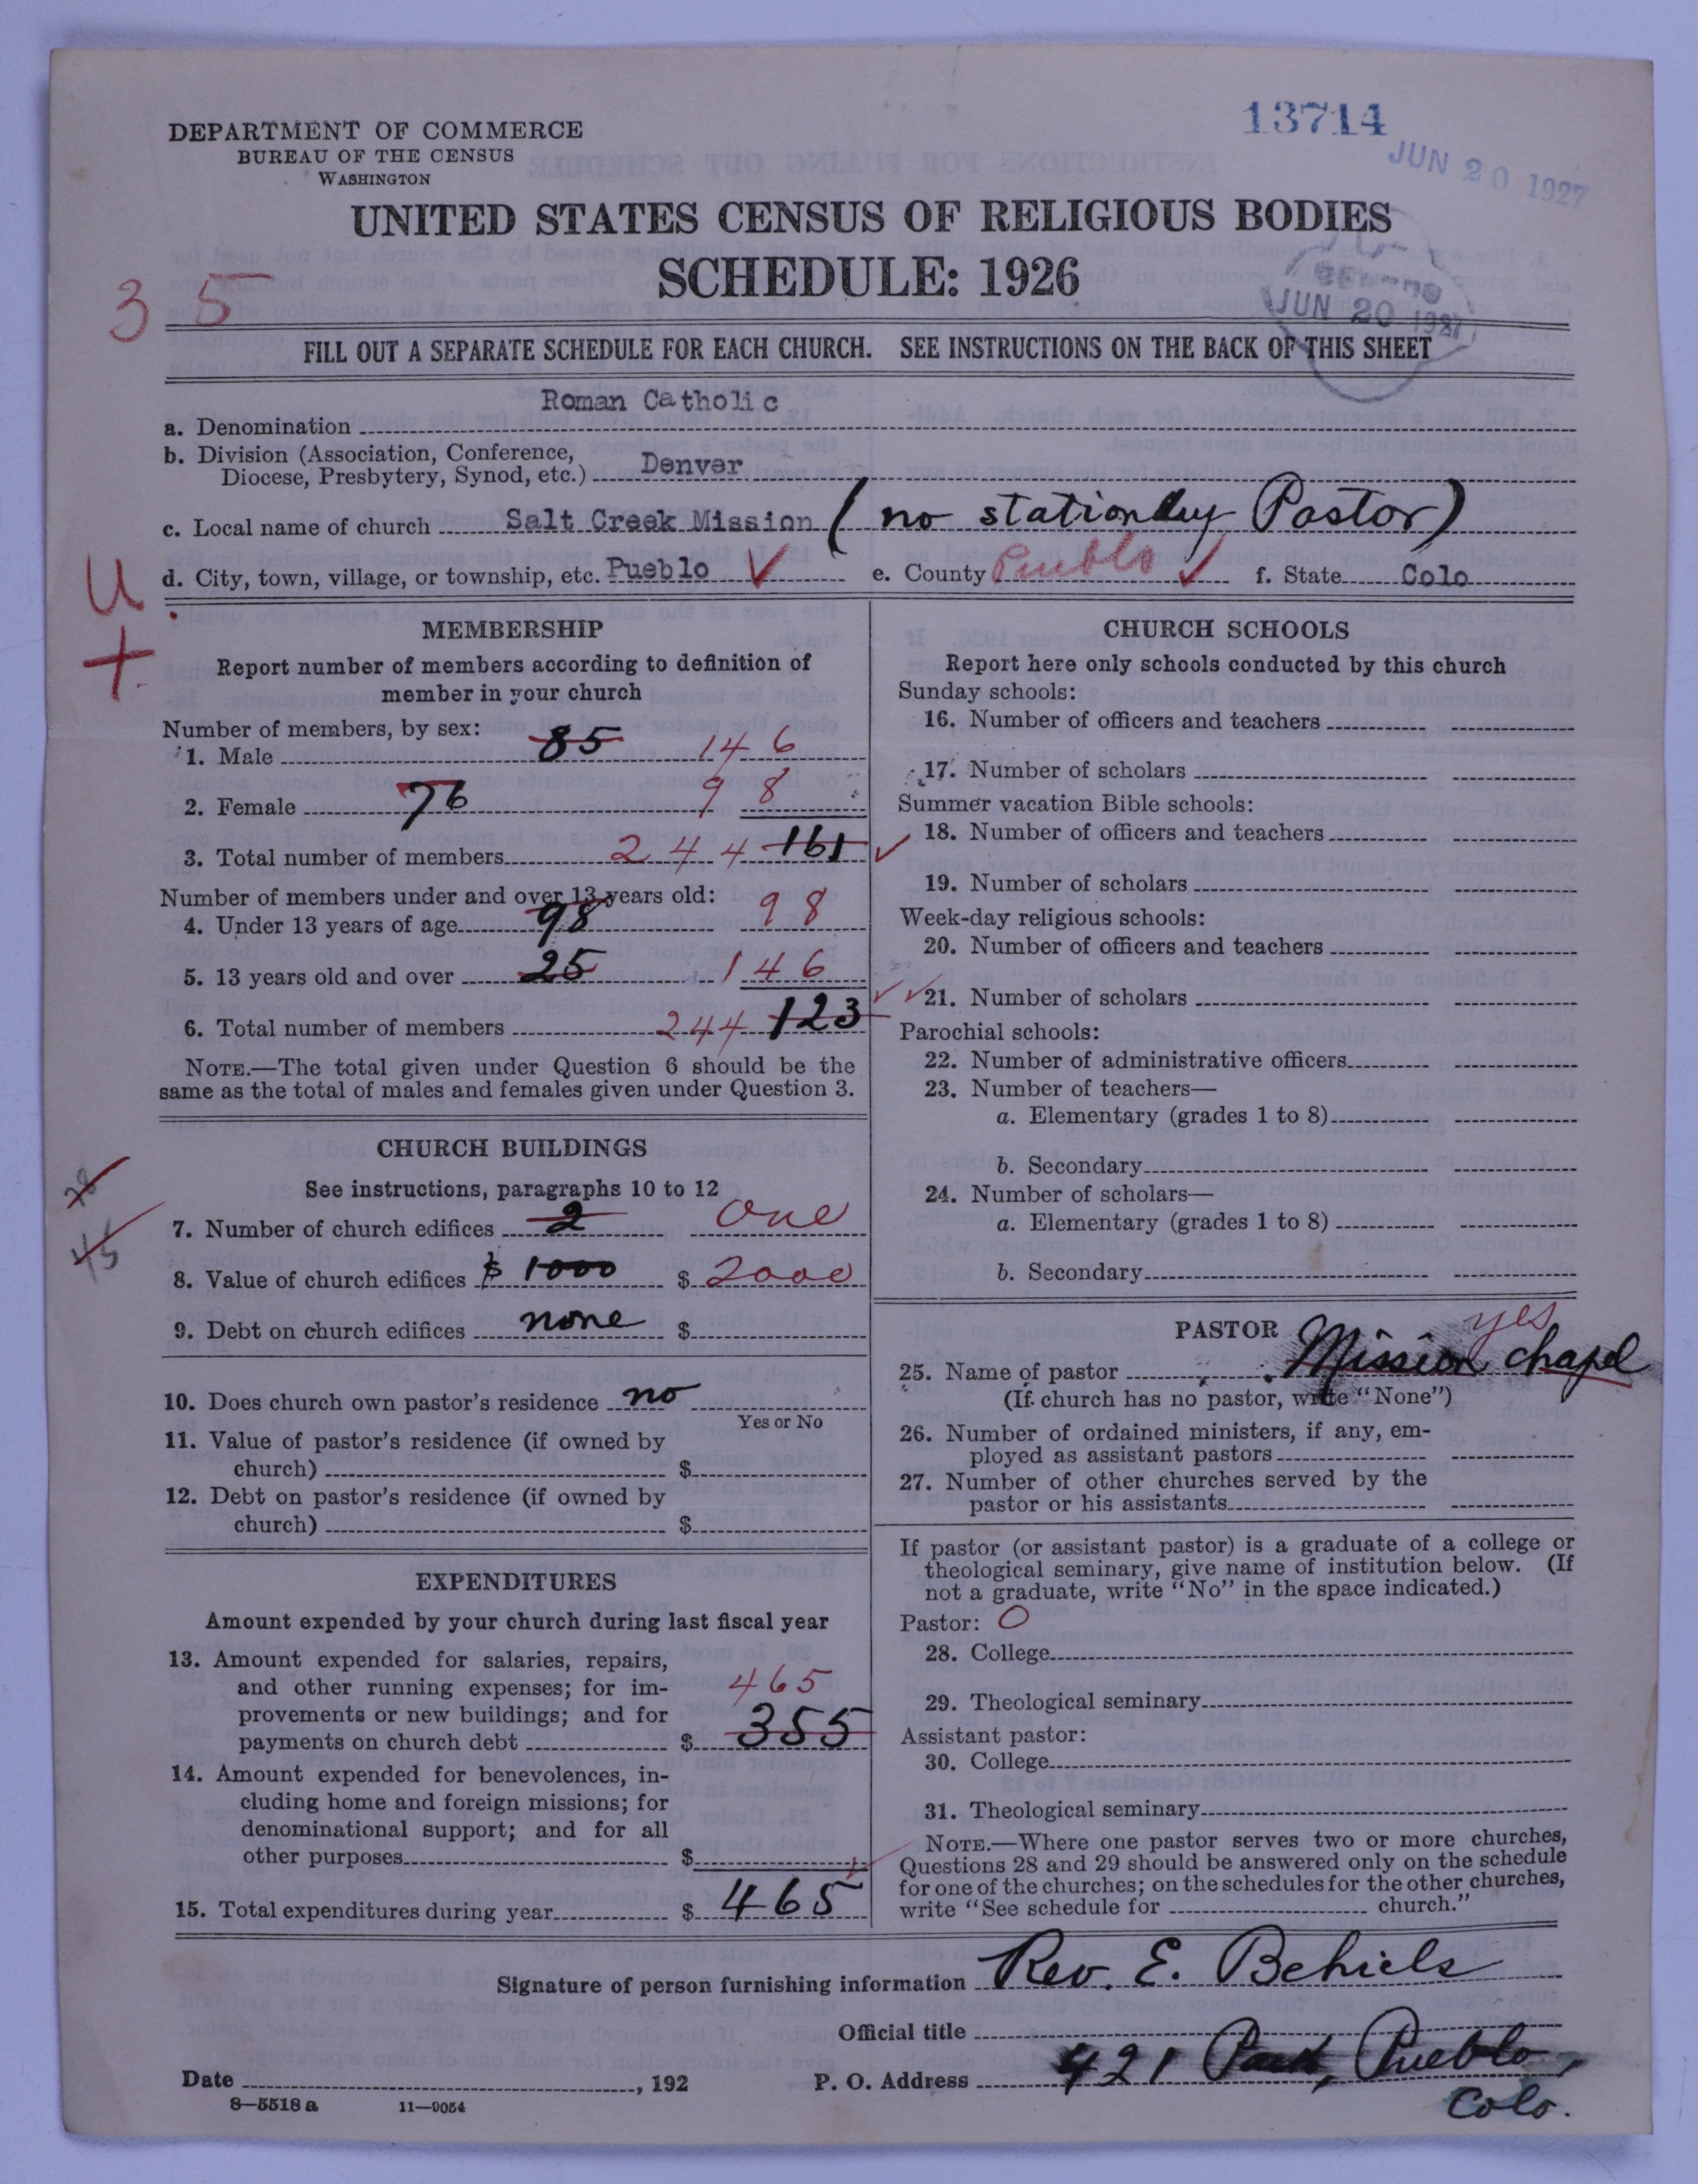 13714
JUN 20 1927
DEPARTMENT OF COMMERCE
BUREAU OF THE CENSUS
WASHINGTON
UNITED STATES CENSUS OF RELIGIOUS BODIES
SCHEDULE: 1926
JUN 20 1927
3 5
FILL OUT A SEPARATE SCHEDULE FOR EACH CHURCH. SEE INSTRUCTIONS ON THE BACK OF THIS SHEET
a. Denomination Roman Catholic
b. Division (Association, Conference,
Diocese, Presbytery, Synod, etc.) Denver
c. Local name of church Salt Creek Mission (no Pastor)
d. City, town, village, or township, etc. Pueblo e. County Pueblo f. State Colo
U
+
MEMBERSHIP
Report number of members according to definition of
member in your church
Number of members, by sex:
1. Male 85 146
2. Female 76 98
3. Total number of members 244 161
Number of members under and over 13 years old:
4. Under 13 years of age 98 98
5. 13 years old and over 25 146
6. Total number of members 244 123
NOTE.—The total given under Question 6 should be the
same as the total of males and females given under Question 3.
CHURCH BUILDINGS
See instructions, paragraphs 10 to 12
7. Number of church edifices 2 one
8. Value of church edifices $ 1000 $ 2000
45
9. Debt on church edifices none $
10. Does church own pastor's residence no
Yes or No
11. Value of pastor's residence (if owned by
church) $
12. Debt on pastor's residence (if owned by
church) $
EXPENDITURES
Amount expended by your church during last fiscal year
13. Amount expended for salaries, repairs,
and other running expenses; for im-
provements or new buildings; and for
payments on church debt $ 465 355
14. Amount expended for benevolences, in-
cluding home and foreign missions; for
denominational support; and for all
other purposes $
15. Total expenditures during year $ 465
CHURCH SCHOOLS
Report here only schools conducted by this church
Sunday schools:
16. Number of officers and teachers
17. Number of scholars
Summer vacation Bible schools:
18. Number of officers and teachers
19. Number of scholars
Week-day religious schools:
20. Number of officers and teachers
21. Number of scholars
Parochial schools:
22. Number of administrative officers
23. Number of teachers—
a. Elementary (grades 1 to 8)
b. Secondary
24. Number of scholars—
a. Elementary (grades 1 to 8)
b. Secondary
PASTOR yes
25. Name of pastor Mission chapel
(If church has no pastor, write "None")
26. Number of ordained ministers, if any, em-
ployed as assistant pastors
27. Number of other churches served by the
pastor or his assistants
If pastor (or assistant pastor) is a graduate of a college or
theological seminary, give name of institution below. (If
not a graduate, write "No" in the space indicated.)
Pastor: O
28. College
29. Theological seminary
Assistant pastor:
30. College
31. Theological seminary
NOTE.—Where one pastor serves two or more churches,
Questions 28 and 29 should be answered only on the schedule
for one of the churches; on the schedules for the other churches,
write "See schedule for church."
Signature of person furnishing information Rev. E. Behiels
Official title
Date , 192 P. O. Address 421 Park, Pueblo,
Colo.
8—5518 a 11—9054